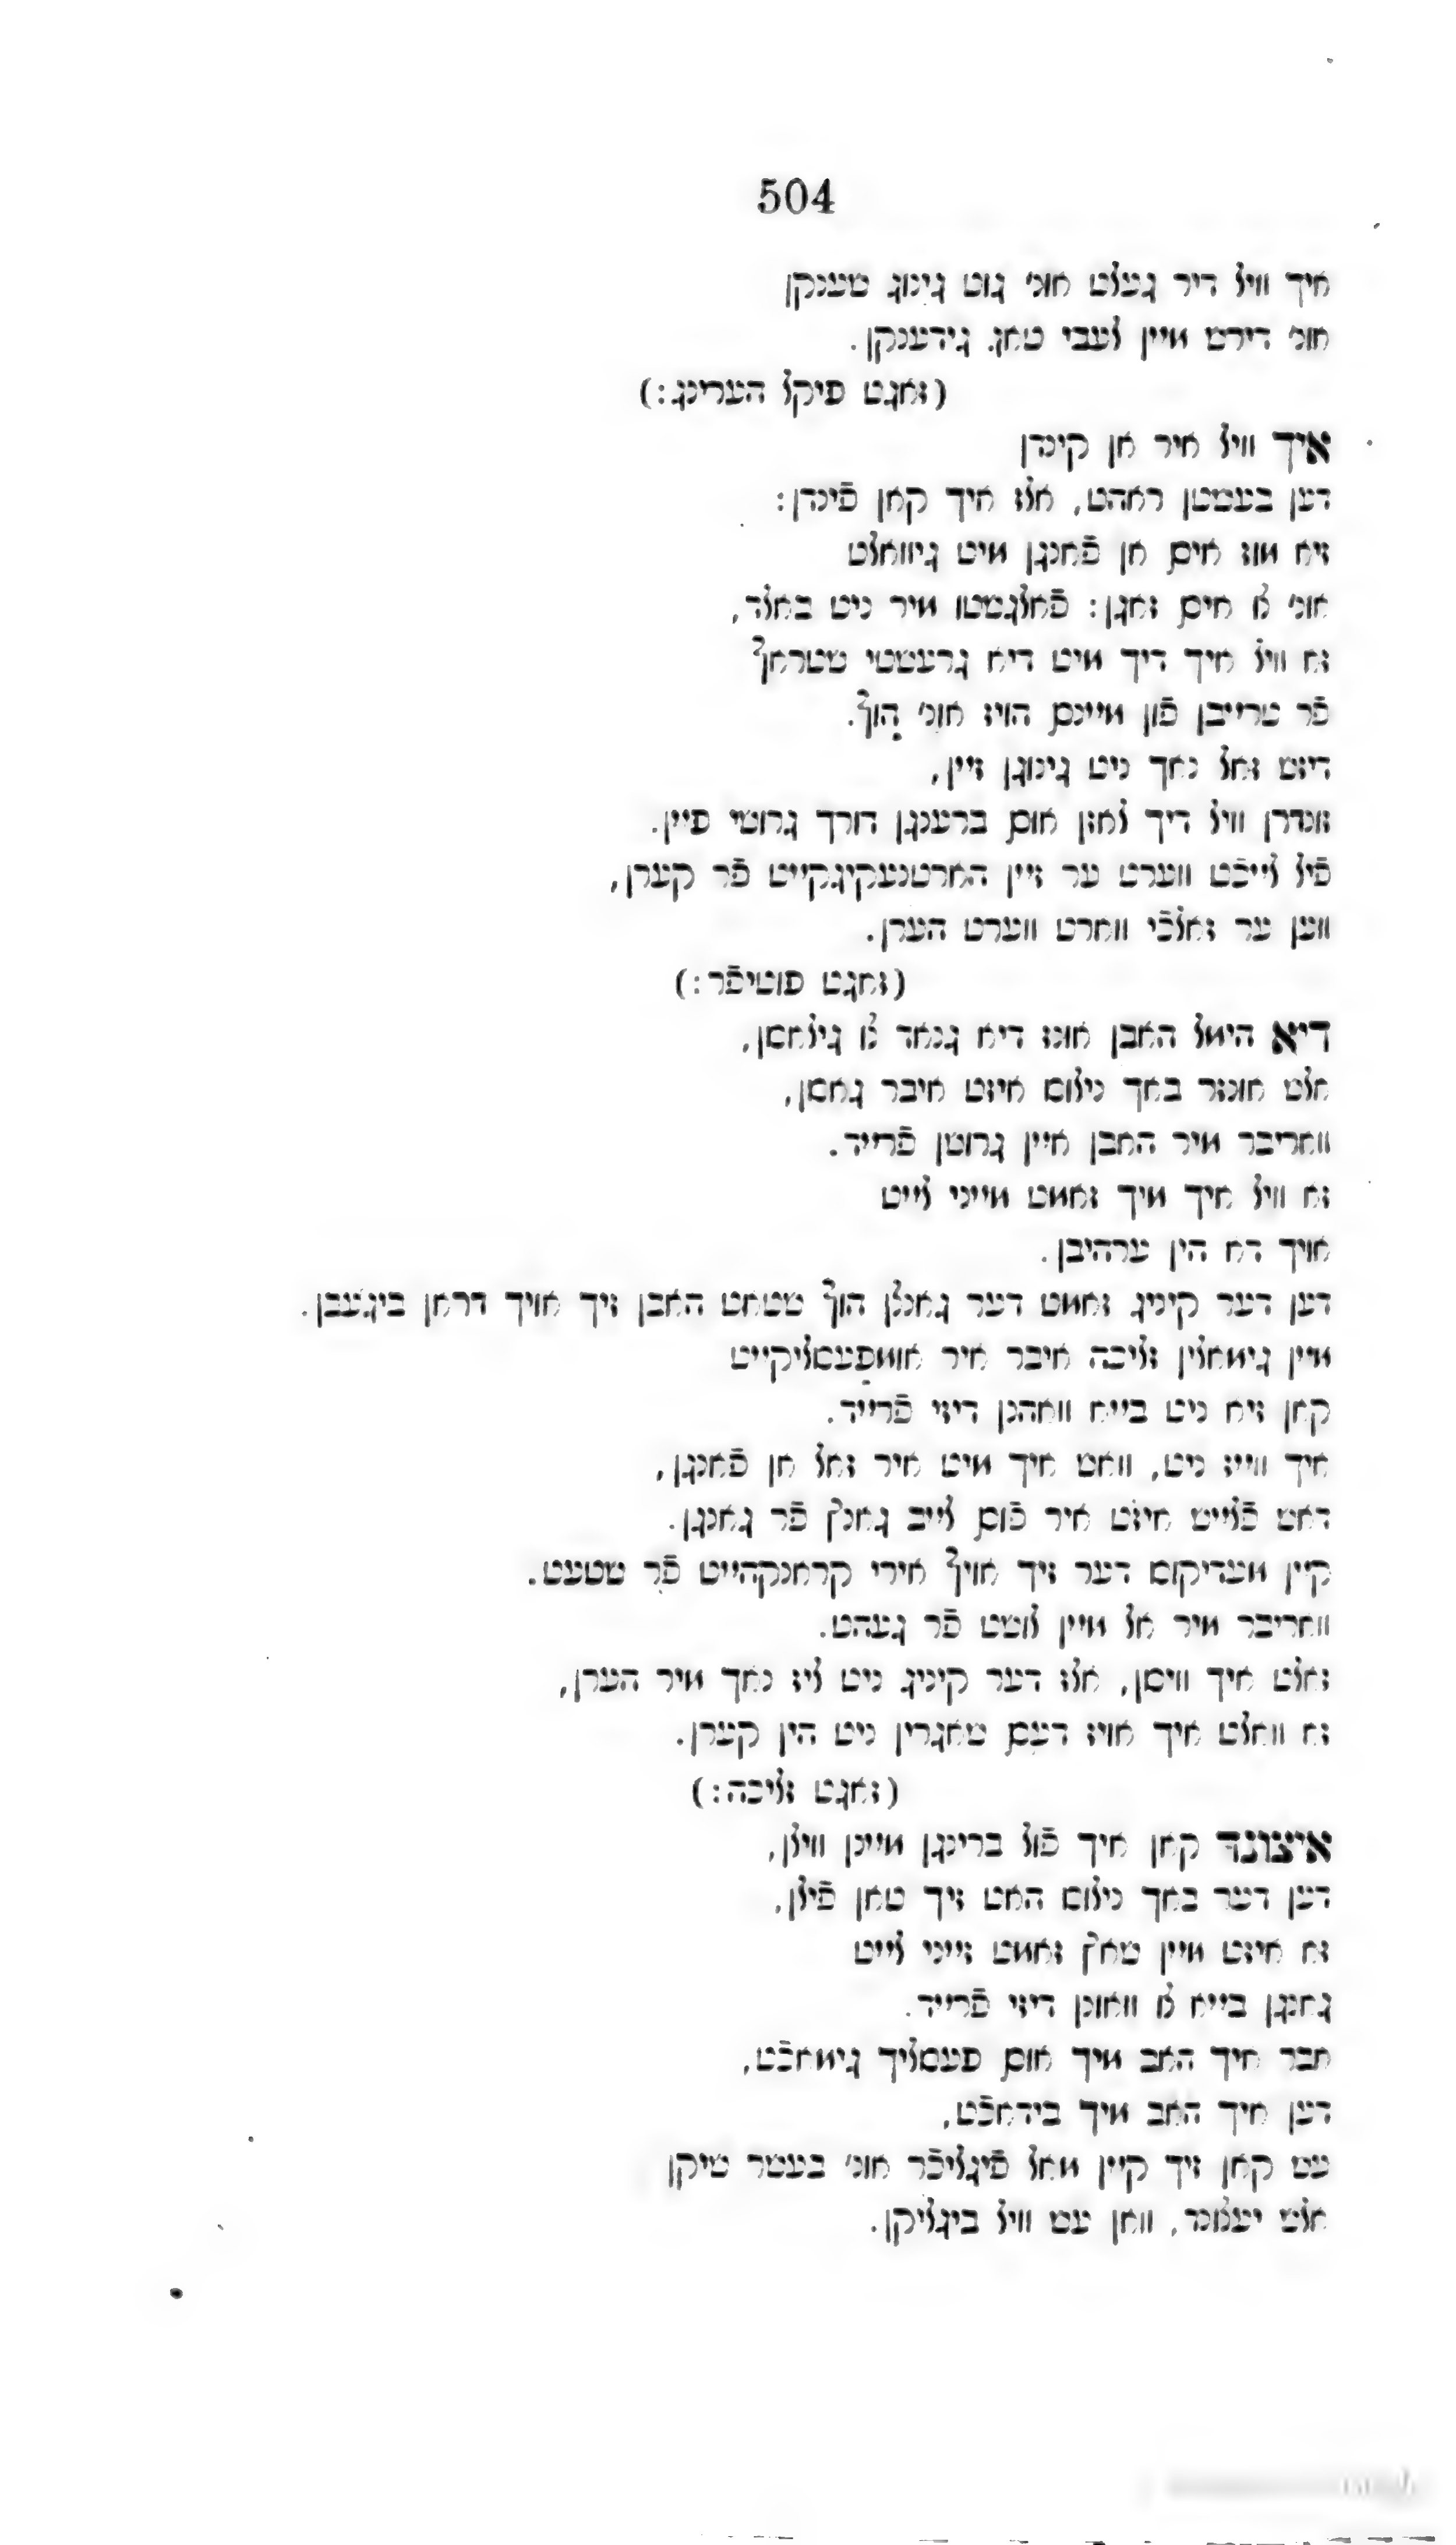 504
איך וויל דיר געלט אונ׳ גוט גינוג שענקן
אונ׳ דירס מיין לעבי טאג גידענקן.
(זאגט פיקל הערינג:)
איך וויל איר אן קינדן
דען בעסטן ראהט, אלז איך קאן פֿינדן:
זיא מוז אים אן פֿאנגן מיט גיוואלט
אונ׳ צו אים זאגן: פֿאלגסטו מיר ניט באלד,
זא וויל איך דיך מיט דיא גרעסטי שטראף
פֿר טרייבן פֿון מיינם הויז אונ׳ הוף.
דיזס זאל נאך ניט גינוגן זיין,
זונדרן וויל דיך לאזן אום ברענגן דורך גרוסי פיין.
פֿיל לייכֿט ווערט ער זיין הארטנעקיגקייט פֿר קערן,
ווען ער זאלכֿי ווארט ווערט הערן.
(זאגט פוטיפֿר:)
דיא הימל האבן אונז דיא גנאד צו גילאסן,
אלס אונזר באך נילוס איזט איבר גאסן,
וואריבר מיר האבן איין גרוסן פֿרייד.
זא וויל איך מיך זאמט מייני לייט
אויך דא הין ערהיבן.
דען דער קיניג זאמט דער גאנצן הוף שטאט האבן זיך אויך דראן ביגעבן.
מיין גימאלין זליכה איבר איר אומפעסליקייט
קאן זיא ניט בייא וואהנן דיזי פֿרייד.
איך ווייז ניט, וואס איך מיט איר זאל אן פֿאנגן,
דאס פֿלייש איזט איר פֿום לייב גאנץ פֿר גאנגן.
קיין מעדיקוס דער זיך אויף אירי קראנקהייט פֿר שטעט.
וואריבר מיר אל מיין לוסט פֿר געהט.
זאלט איך וויסן, אלז דער קיניג ניט ליז נאך מיר הערן,
זא וואלט איך אויז דעם שאגרין ניט הין קערן.
(זאגט זליכה:)
איצונד קאן איך פֿול ברינגן מיינן ווילן,
דען דער באך נילוס האט זיך טאן פֿילן,
זא איזט מיין שאץ זאמט זייני לייט
גאנגן בייא צו וואונן דיזי פֿרייד.
אבר איך האב מיך אום פעסליך גימאכֿט,
דען איך האב מיך בידאכֿט,
עס קאן זיך קיין מאל פֿיגליכֿר אונ׳ בעסר שיקן
אלס יעצונד, וואן עס וויל ביגליקן.